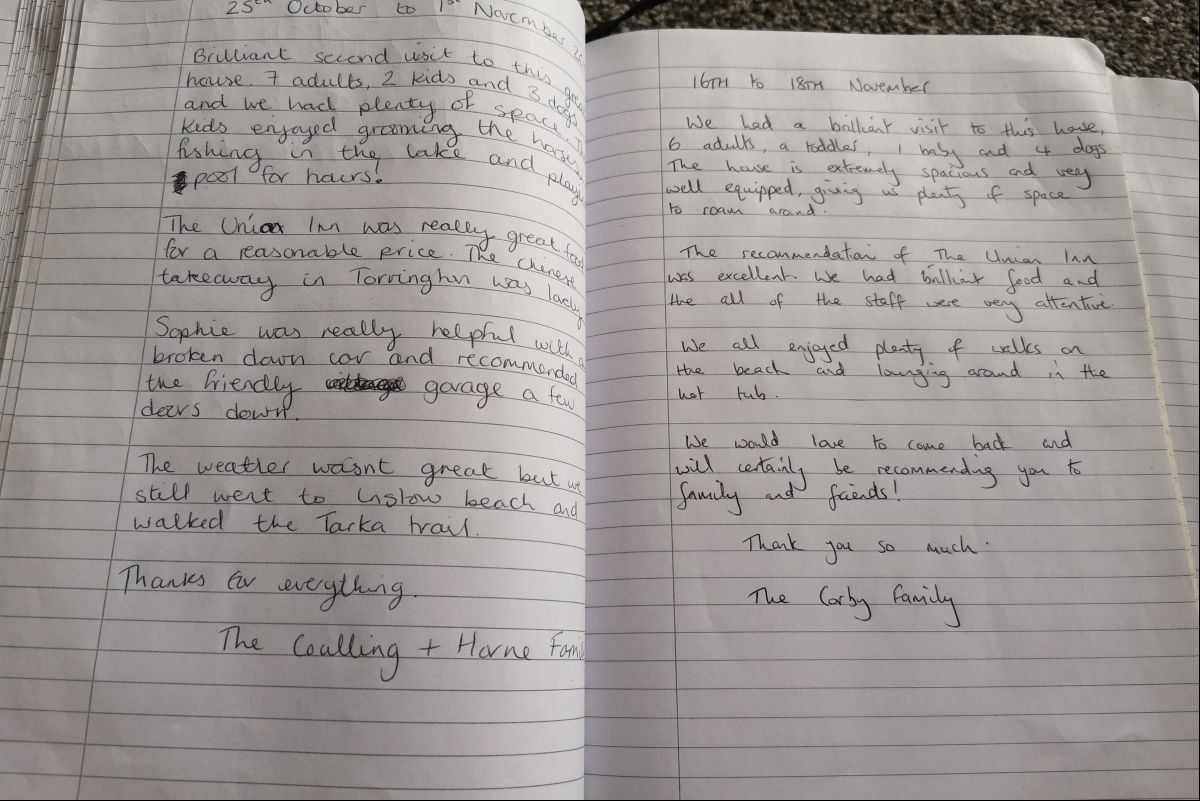 25th October to 1st November
Brilliant second visit to this
house. 7 adults, 2 kids and 3 dogs
and we had plenty of space.
Kids enjoyed grooming the horses,
fishing in the lake and
pool for hours!
The Union Inn was really great food
for a reasonable price. The chinese
takeaway in Torrington was lovely
Sophie was really helpful with a
broken down car and recommended
the friendly garage a few
doors down.
The weather wasnt great but we
still went to Instow beach and
walked the Tarka trail.
Thanks for everything.
The Coalling + Horne
16TH to 18TH November
We had a brilliant visit to this house,
6 adults, a toddler, 1 baby and 4 dogs.
The house is extremely spacious and very
well equipped, giving us plenty of space
to roam around.
The recommendation of The Union Inn
was excellent. We had brilliant food and
the all of the staff were very attentive.
We all enjoyed plenty of walks on
the beach and lounging around in the
hot tub.
We would love to come back and
will certainly be recommending you to
family and friends!
Thank you so much.
The Corby Family